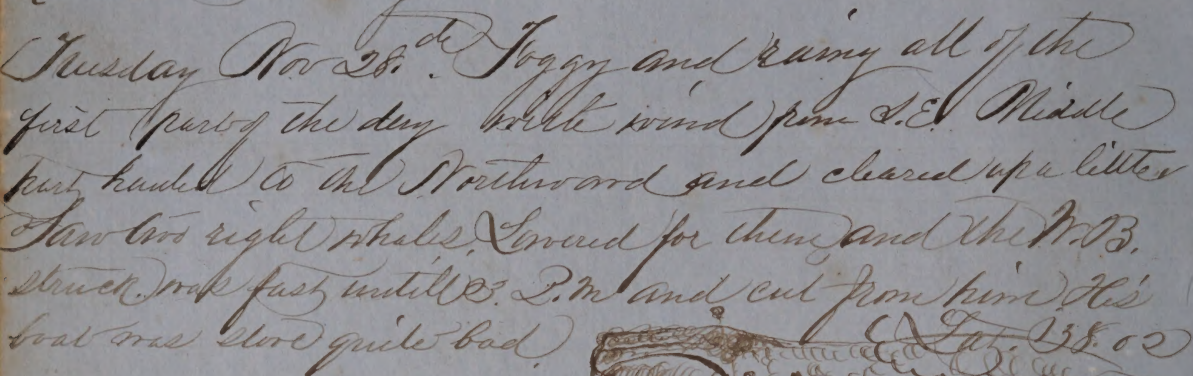 Tuesday Nov 28th. Foggy and rainy all of the
first part of the day with wind from S.E. Middle
part hauled to the Northward and cleared up a little
Saw two right whales. Lowered for them and the W.B.
struck. was fast untill 3. P.M and cut from him. His
boat was stove quite bad Lat. 38.02